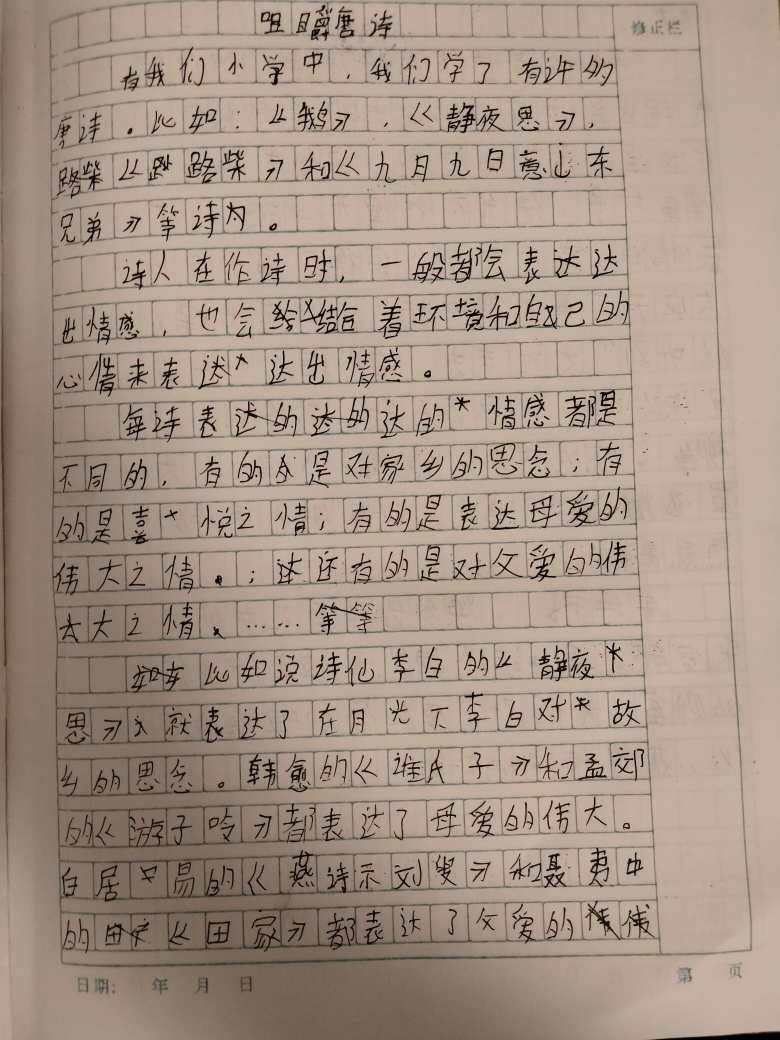 咀嚼唐诗
修正栏
在我们小学中，我们学了有许的
唐诗。比如：《鹅》，《静夜思》，
《路柴》和《九月九日意山东
兄弟》等诗为。
诗人在作诗时，一般都会表达达
出情感，也会结合着环境和自己的
心情来表达达出情感。
每诗表达的情感都是
不同的，有的是对家乡的思念；有
的是喜悦之情；有的是表达母爱的
伟大之情；还有的是对父爱的伟
大之情、……
比如说诗仙李白的《静夜
思》就表达了在月光下李白对故
乡的思念。韩愈的《谁氏子》和孟郊
的《游子呤》都表达了母爱的伟大。
白居易的《燕诗示刘叟》和聂夷中
的《田家》都表达了父爱的伟
日期： 年 月 日
第 页